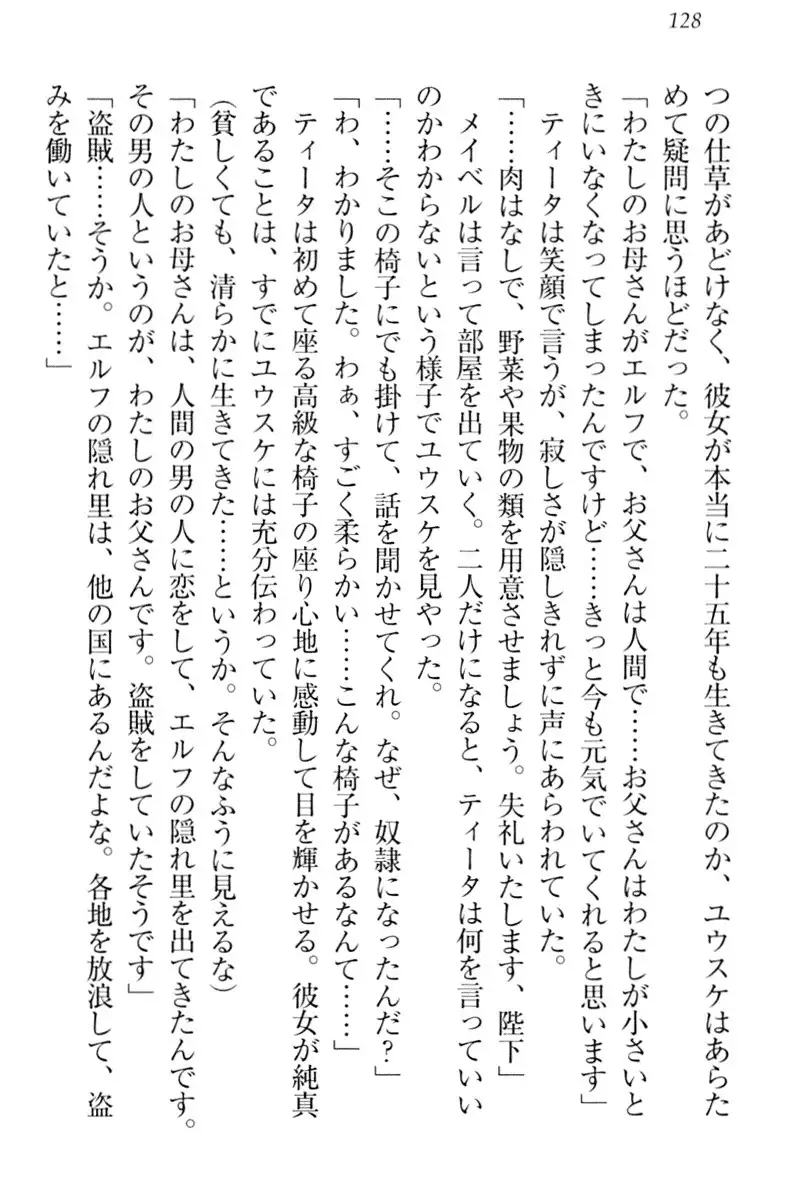 128
つの仕草があどけなく、彼女が本当に二十五年も生きてきたのか、ユウスケはあらた
めて疑問に思うほどだった。
「わたしのお母さんがエルフで、お父さんは人間で……お父さんはわたしが小さいと
きにいなくなってしまったんですけど……きっと今も元気でいてくれると思います」
ティータは笑顔で言うが、寂しさが隠しきれずに声にあらわれていた。
「……肉はなしで、野菜や果物の類を用意させましょう。失礼いたします、陛下」
メイベルは言って部屋を出ていく。二人だけになると、ティータは何を言っていい
のかわからないという様子でユウスケを見やった。
「……そこの椅子にでも掛けて、話を聞かせてくれ。なぜ、奴隷になったんだ？」
「わ、わかりました。わぁ、すごく柔らかい……こんな椅子があるなんて……」
ティータは初めて座る高級な椅子の座り心地に感動して目を輝かせる。彼女が純真
であることは、すでにユウスケには充分伝わっていた。
（貧しくても、清らかに生きてきた……というか。そんなふうに見えるな）
「わたしのお母さんは、人間の男の人に恋をして、エルフの隠れ里を出てきたんです。
その男の人というのが、わたしのお父さんです。盗賊をしていたそうです」
「盗賊……そうか。エルフの隠れ里は、他の国にあるんだよな。各地を放浪して、盗
みを働いていたと……」